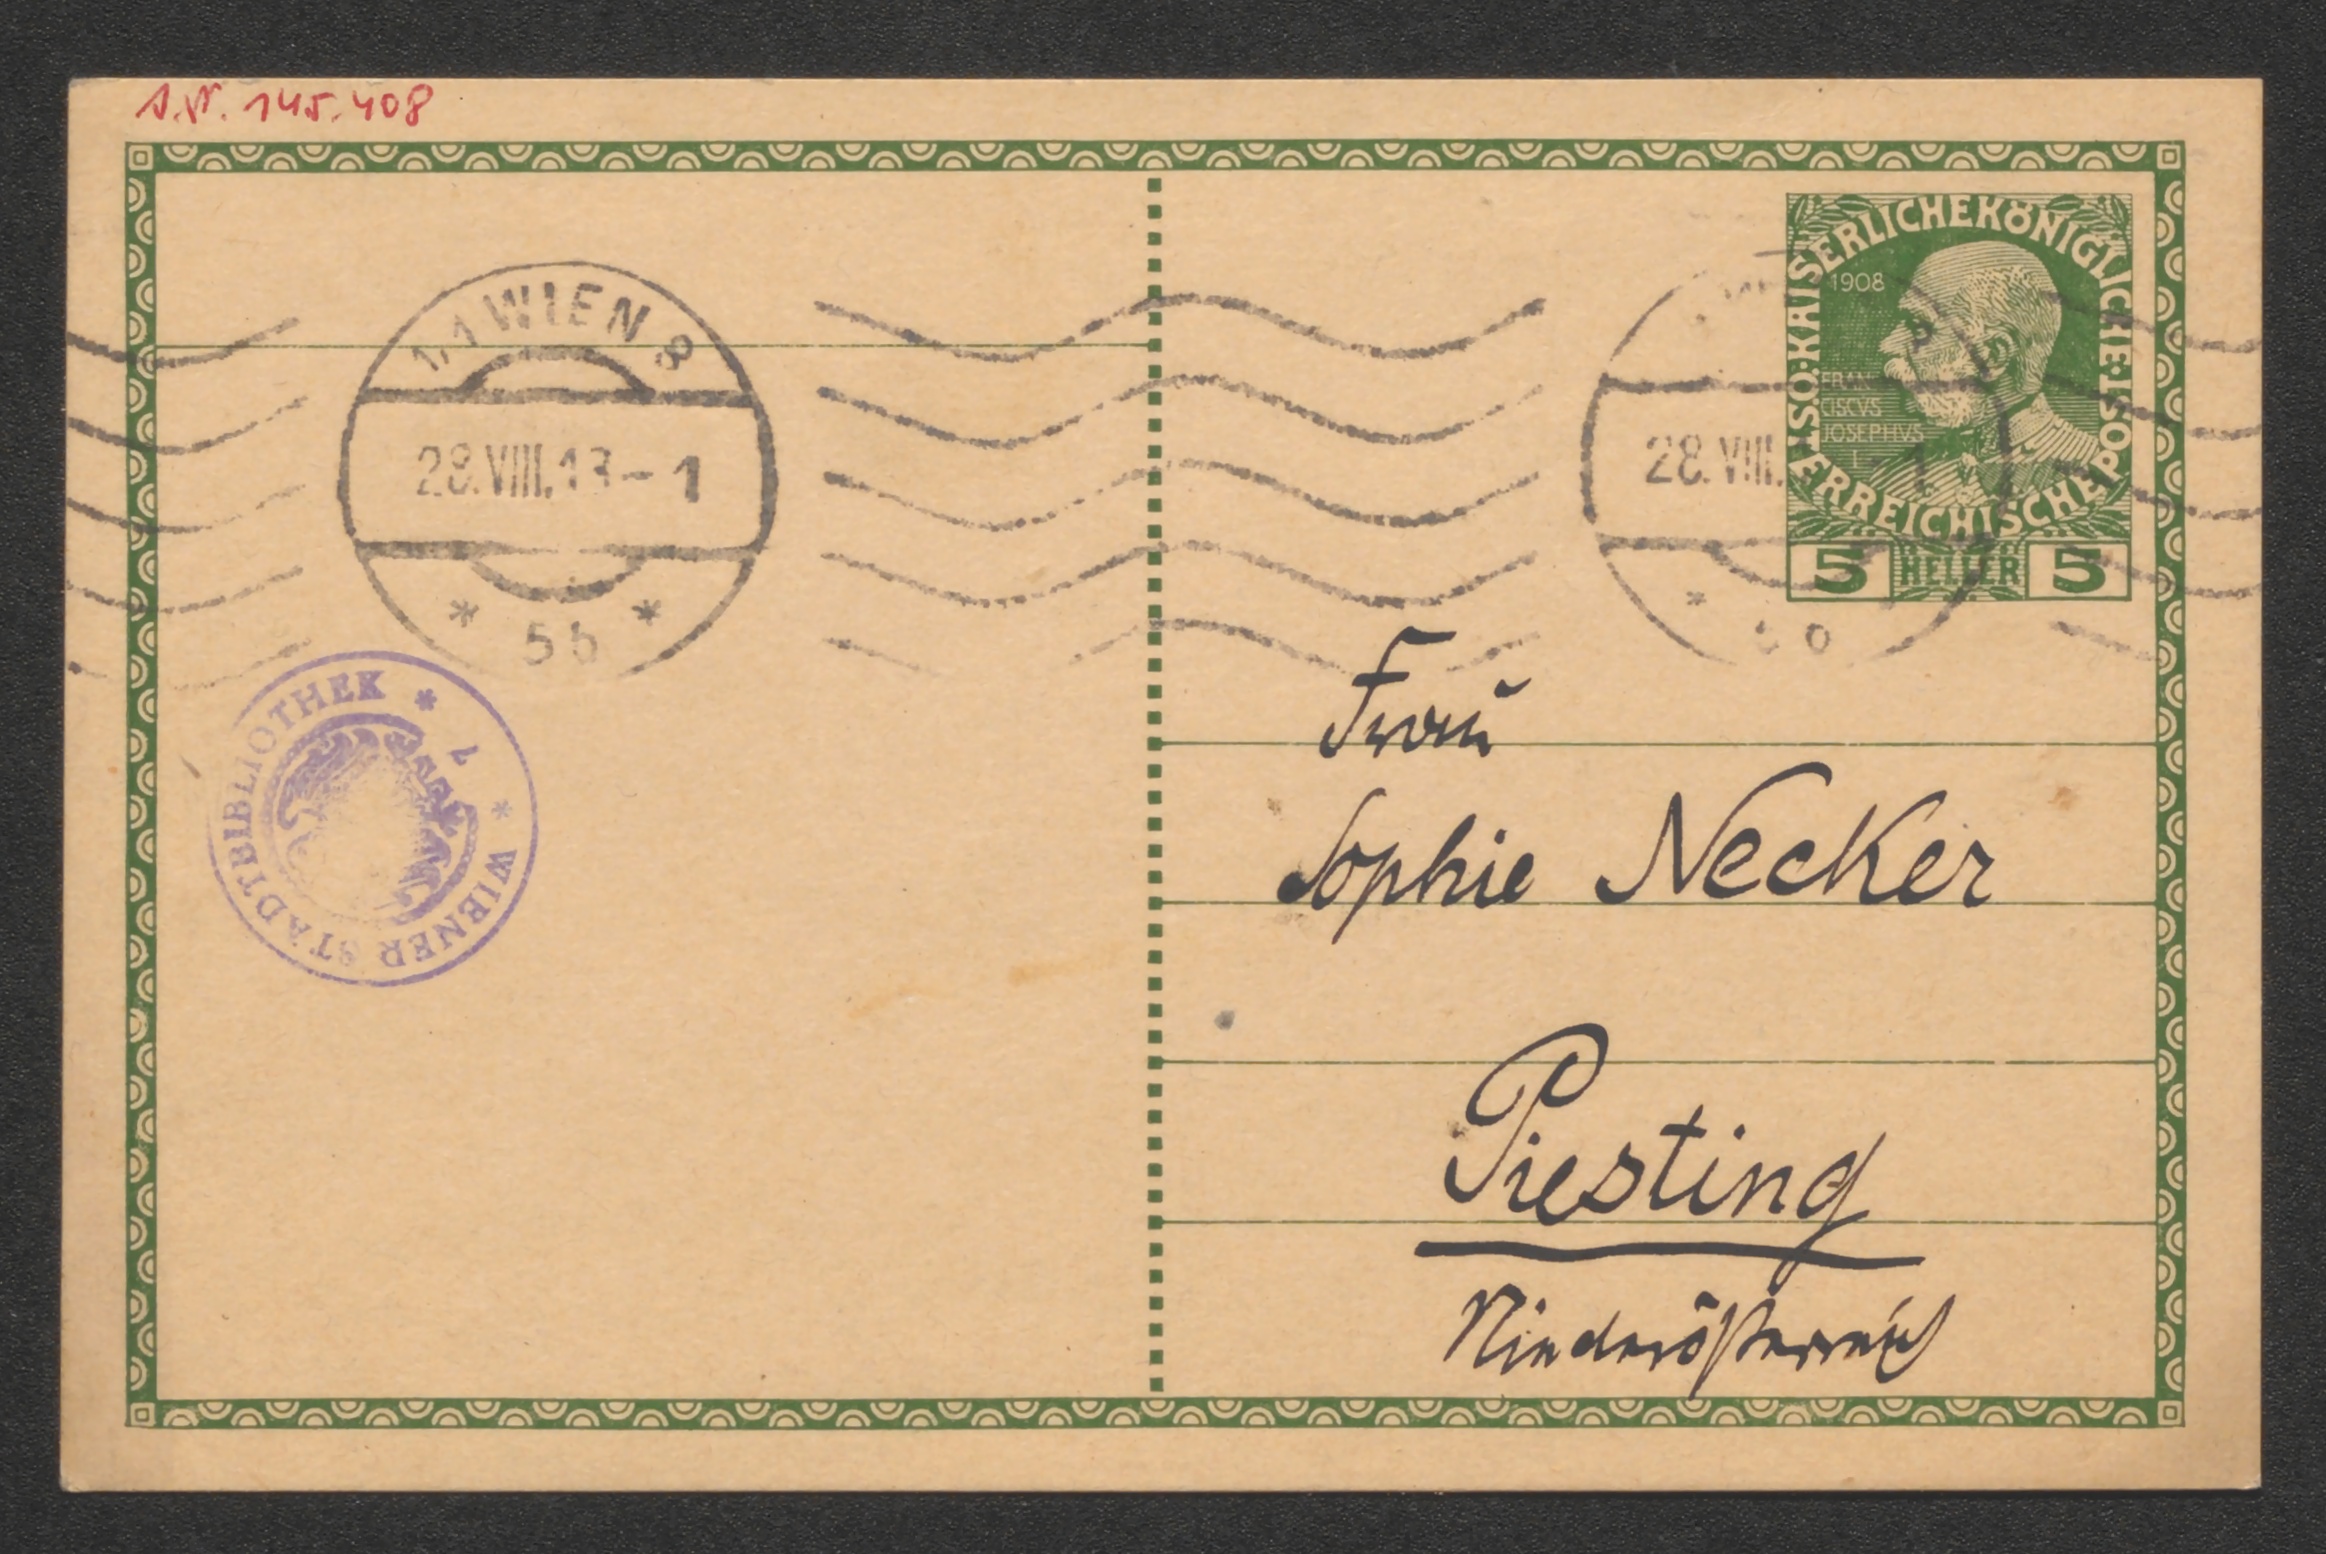 I.N. 145.408
1/1 WIEN 8
28.VIII.13-1
* 5b *
WIENER STADTBIBLIOTHEK
KAISERLICHE KÖNIGLICHE ÖSTERREICHISCHE POST
1908
FRAN
CISCVS
JOSEPHVS
I
5 HELLER 5
28.VIII. -1
Frau
Sophie Necker
Piesting
Niederösterreich